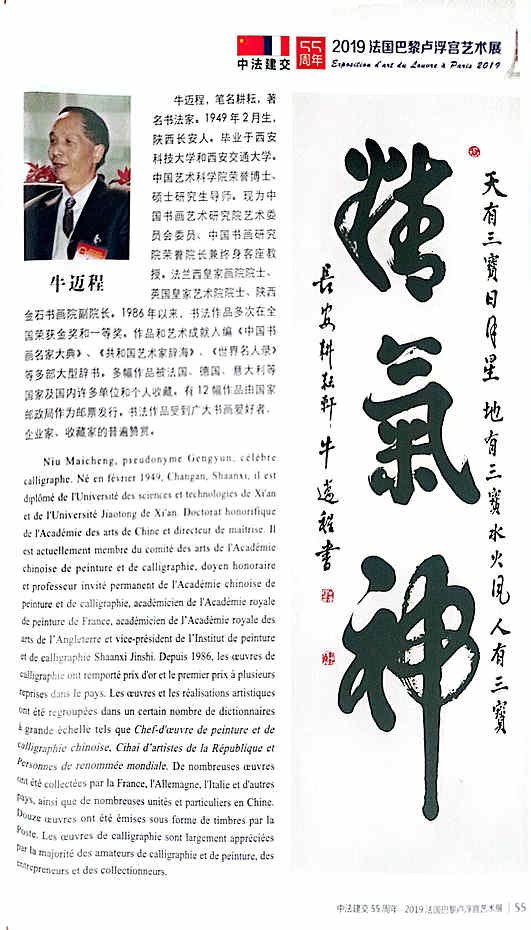 中法建交
55
周年
2019法国巴黎卢浮宫艺术展
Exposition d'art du Louvre à Paris 2019
牛迈程，笔名耕耘，著
名书法家。1949年2月生，
陕西长安人。毕业于西安
科技大学和西安交通大学。
中国艺术科学院荣誉博士、
硕士研究生导师。现为中
国书画艺术研究院艺术委
员会委员、中国书画研究
院荣誉院长兼终身客座教
授。法兰西皇家画院院士、
英国皇家艺术院院士、陕西
牛迈程
金石书画院副院长。1986年以来，书法作品多次在全
国荣获金奖和一等奖。作品和艺术成就人编《中国书
画名家大典》、《共和国艺术家辞海》、《世界名人录》
等多部大型辞书。多幅作品被法国、德国、意大利等
国家及国内许多单位和个人收藏。有12幅作品由国家
邮政局作为邮票发行。书法作品受到广大书画爱好者、
企业家、收藏家的普遍赞赏。
Niu Maicheng, pseudonyme Gengyun, célèbre
calligraphe. Né en février 1949, Changan, Shaanxi, il est
diplômé de l'Université des sciences et technologies de Xi'an
et de l'Université Jiaotong de Xi'an. Doctorat honorifique
de l'Académie des arts de Chine et directeur de maîtrise. Il
est actuellement membre du comité des arts de l'Académie
chinoise de peinture et de calligraphie, doyen honoraire
et professeur invité permanent de l'Académie chinoise de
peinture et de calligraphie, académicien de l'Académie royale
de peinture de France, académicien de l'Académie royale des
arts de l'Angleterre et vice-président de l'Institut de peinture
et de calligraphie Shaanxi Jinshi. Depuis 1986, les œuvres de
calligraphie ont remporté prix d'or et le premier prix à plusieurs
reprises dans le pays. Les œuvres et les réalisations artistiques
ont été regroupées dans un certain nombre de dictionnaires
à grande échelle tels que Chef-d'œuvre de peinture et de
calligraphie chinoise, Cihai d'artistes de la République et
Personnes de renommée mondiale. De nombreuses œuvres
ont été collectées par la France, l'Allemagne, l'Italie et d'autres
pays, ainsi que de nombreuses unités et particuliers en Chine.
Douze œuvres ont été émises sous forme de timbres par la
Poste. Les œuvres de calligraphie sont largement appréciées
par la majorité des amateurs de calligraphie et de peinture, des
entrepreneurs et des collectionneurs.
天有三寶日月星 地有三寶水火风 人有三寶
精氣神
長安耕耘軒牛邁程書
中法建交55周年 2019法国巴黎卢浮宫艺术展 | 55